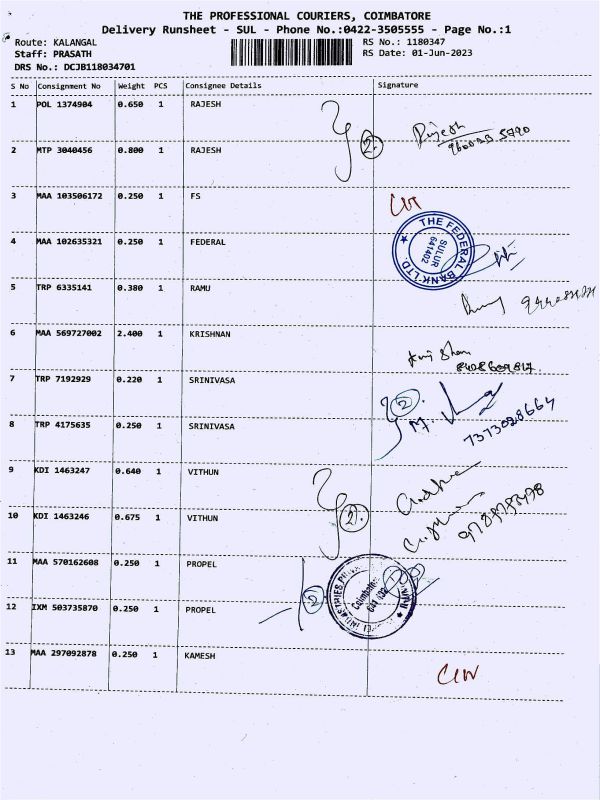 THE PROFESSIONAL COURIERS, COIMBATORE
Delivery Runsheet - SUL - Phone No.:0422-3505555 - Page No.:1
Route: KALANGAL RS No.: 1180347
Staff: PRASATH RS Date: 01-Jun-2023
DRS No.: DCJB118034701
S No Consignment No Weight PCS Consignee Details Signature
1 POL 1374904 0.650 1 RAJESH
2 MTP 3040456 0.800 1 RAJESH
2.
Rajesh
3 MAA 103506172 0.250 1 FS
4 MAA 102635321 0.250 1 FEDERAL
THE FEDERAL BANK LTD.
SULUR
641402
5 TRP 6335141 0.380 1 RAMU
6 MAA 569727002 2.400 1 KRISHNAN
7 TRP 7192929 0.220 1 SRINIVASA
8 TRP 4175635 0.250 1 SRINIVASA
2.
7373028664
9 KDI 1463247 0.640 1 VITHUN
10 KDI 1463246 0.675 1 VITHUN
2.
11 MAA 570162608 0.250 1 PROPEL
12 IXM 503735870 0.250 1 PROPEL
2
INDUSTRIES
Coimbatore
13 MAA 297092878 0.250 1 KAMESH